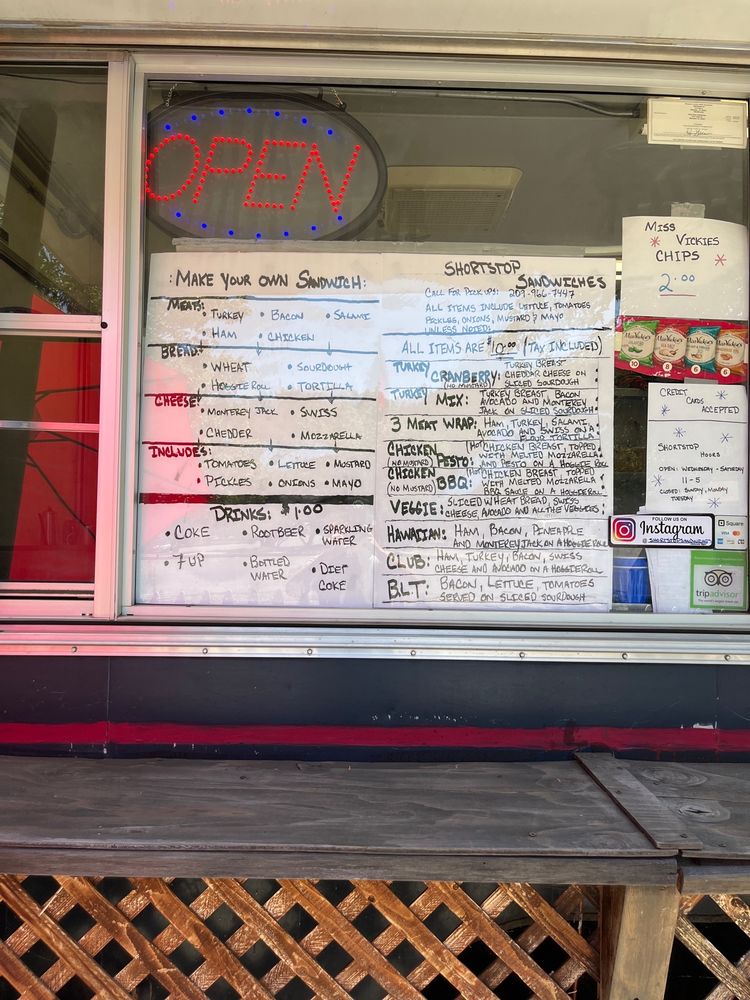 OPEN
: MAKE YOUR OWN SANDWICH:
MEATS:
• TURKEY • BACON • SALAMI
• HAM • CHICKEN
BREAD:
• WHEAT • SOURDOUGH
• HOGGIE ROLL • TORTILLA
CHEESE:
• MONTEREY JACK • SWISS
• CHEDDER • MOZZARELLA
INCLUDES:
• TOMATOES • LETTUCE • MUSTARD
• PICKLES • ONIONS • MAYO
DRINKS: $1.00
• COKE • ROOTBEER • SPARKLING WATER
• 7 UP • BOTTLED WATER • DIET COKE
SHORTSTOP
SANDWICHES
CALL FOR PICK UPS: 209-966-7447
ALL ITEMS INCLUDE LETTUCE, TOMATOES
PICKLES, ONIONS, MUSTARD & MAYO
UNLESS NOTED:
ALL ITEMS ARE $10.00 (TAX INCLUDED)
TURKEY CRANBERRY: (NO MUSTARD) TURKEY BREAST
CHEDDAR CHEESE ON
SLICED SOURDOUGH
TURKEY MIX: TURKEY BREAST, BACON
AVOCADO AND MONTEREY
JACK ON SLICED SOURDOUGH
3 MEAT WRAP: HAM, TURKEY, SALAMI,
AVOCADO AND SWISS ON A
FLOUR TORTILLA
CHICKEN PESTO: (NO MUSTARD) (HOT) CHICKEN BREAST TOPPED
WITH MELTED MOZZARELLA
AND PESTO ON A HOGGIE ROLL
CHICKEN BBQ: (NO MUSTARD) (HOT) CHICKEN BREAST, TOPPED
WITH MELTED MOZZARELLA
BBQ SAUCE ON A HOGGIE ROLL
VEGGIE: SLICED WHEAT BREAD, SWISS
CHEESE, AVOCADO AND ALL THE VEGGIES
HAWAIIAN: HAM, BACON, PINEAPPLE
AND MONTEREY JACK ON A HOGGIE ROLL
CLUB: HAM, TURKEY, BACON, SWISS
CHEESE AND AVOCADO ON A HOGGIE ROLL
B.L.T: BACON, LETTUCE, TOMATOES
SERVED ON SLICED SOURDOUGH
MISS
VICKIES
CHIPS
2.00
10 8 6 6
CREDIT
CARDS
ACCEPTED
SHORTSTOP
HOURS
OPEN: WEDNESDAY - SATURDAY
11-5
CLOSED: SUNDAY, MONDAY
TUESDAY
FOLLOW US ON
Instagram
Square
tripadvisor